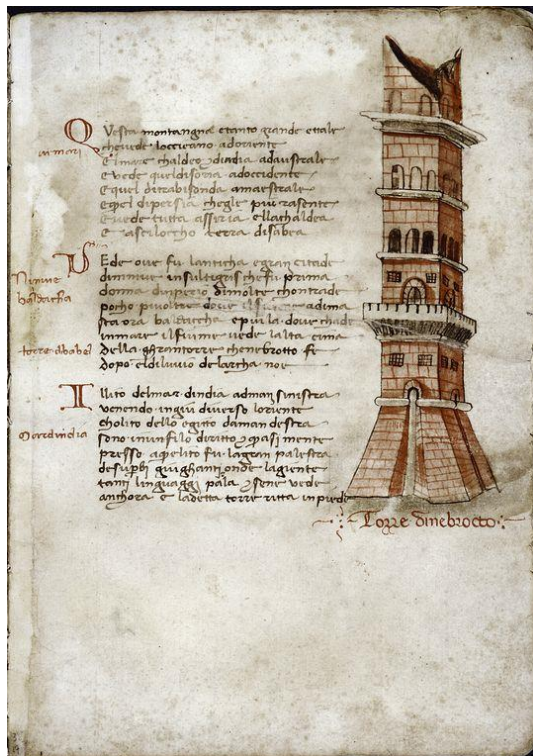 Questa montangna e tanto grande e ttale
che vede loceano a ponente
El mare chaldeo dindia adaustrale
E vede quel di soria adoccidente
E quel ditrabisonda a maestrale
E quel dipersia chegle piu rasente
E vede tutta assiria e lla chaldea
E a sciloccho terra di sabea
Vede ove fu lanticha e gran citade
di ninive in sul tigris che fu prima
donna dinperio di molte chontrade
pocho piu oltre dove il fiume adima
sta ora baldaccha e piu la dove chade
in mare il fiume vede lalta cima
della ghran torre che nebrotto fe
dopo el diluvio de larcha noe
Ninive
baldaccha
torre ababel
Illito del mar dindia a man sinistra
venendo in giu diverso loriente
e holito dello egitto da man destra
sono in un filo diritto quasi mente
presso a quelito fu la gran palestra
de superbi giughanti onde la giente
tanti linguaggi parla e sene vede
anchora e la detta torre ritta in piede
Mar dindia
Torre dinebrotto